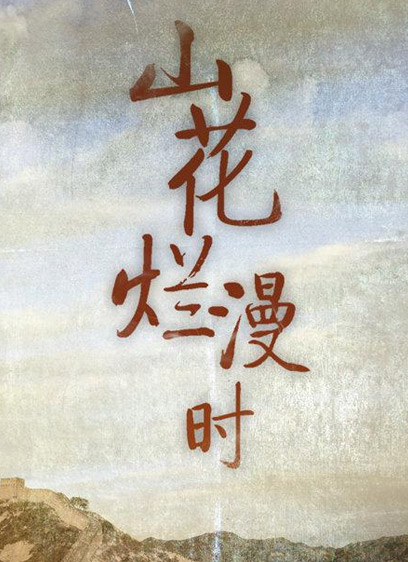 山花烂漫时